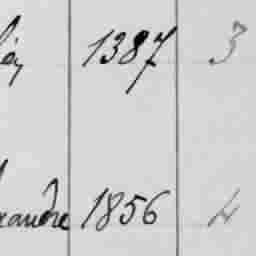 1387 3
xandre 1856 4